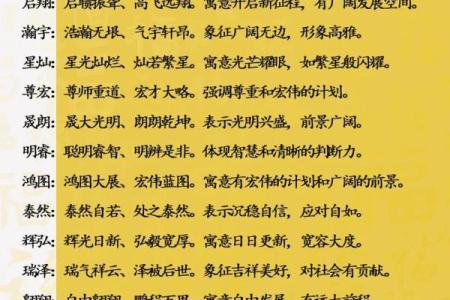 启翔：启顺振耸、高飞远翔。寓意开启新征程，有广阔发展空间。
瀚宇：浩瀚无垠、气宇轩昂。象征广阔无边，形象高雅。
星灿：星光灿烂、灿若繁星。寓意光芒耀眼，如繁星般闪耀。
尊宏：尊师重道、宏才大略。强调尊重和宏伟的计划。
晟朗：晟大光明、朗朗乾坤。表示光明兴盛，前景广阔。
明睿：聪明睿智、明辨是非。体现智慧和清晰的判断力。
鸿图：鸿图大展、宏伟蓝图。寓意有宏伟的计划和广阔的前景。
泰然：泰然自若、处之泰然。表示沉稳自信，应对自如。
辉弘：辉光日新、弘毅宽厚。寓意日日更新，宽容大度。
瑞泽：瑞气祥云、泽被后世。象征吉祥美好，对社会有贡献。
翱翔：自由翱翔、鹏程万里。寓意自由发展，有远大前程。